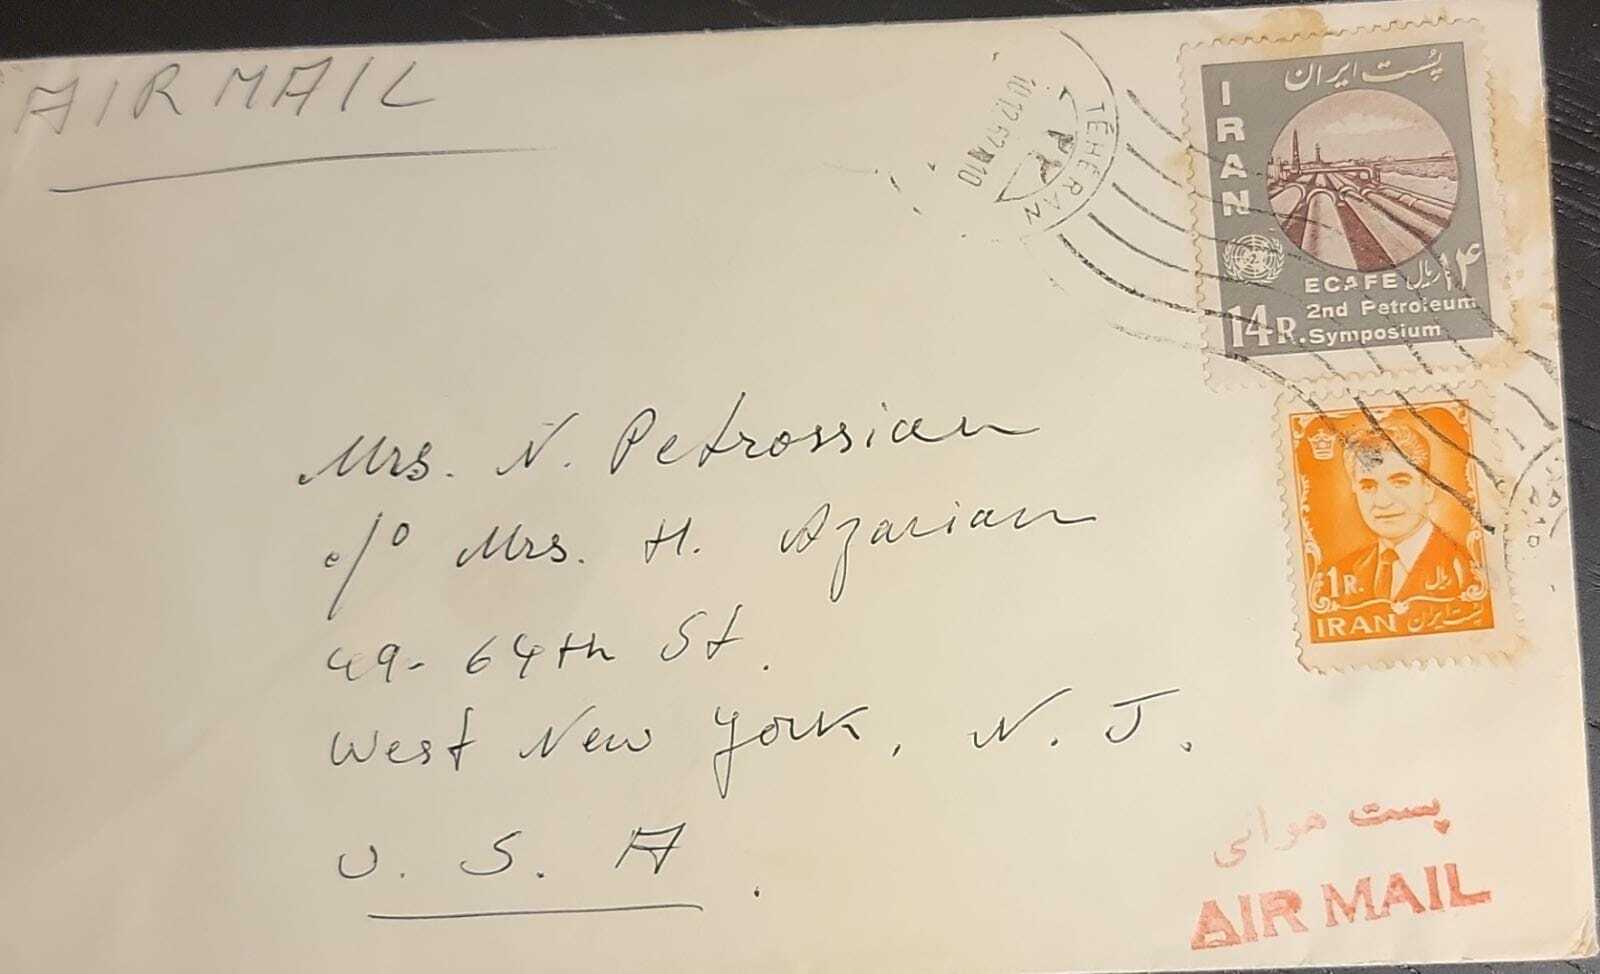 AIR MAIL
TÉHÉRAN
پست ایران
IRAN
ECAFE ۱۴ ریال
2nd Petroleum
14R. Symposium
1R. ۱ ریال
IRAN پست ایران
Mrs. N. Petrossian
c/o Mrs. H. Azarian
49- 64th St.
West New York, N. J.
U. S. A.
پست هوائی
AIR MAIL